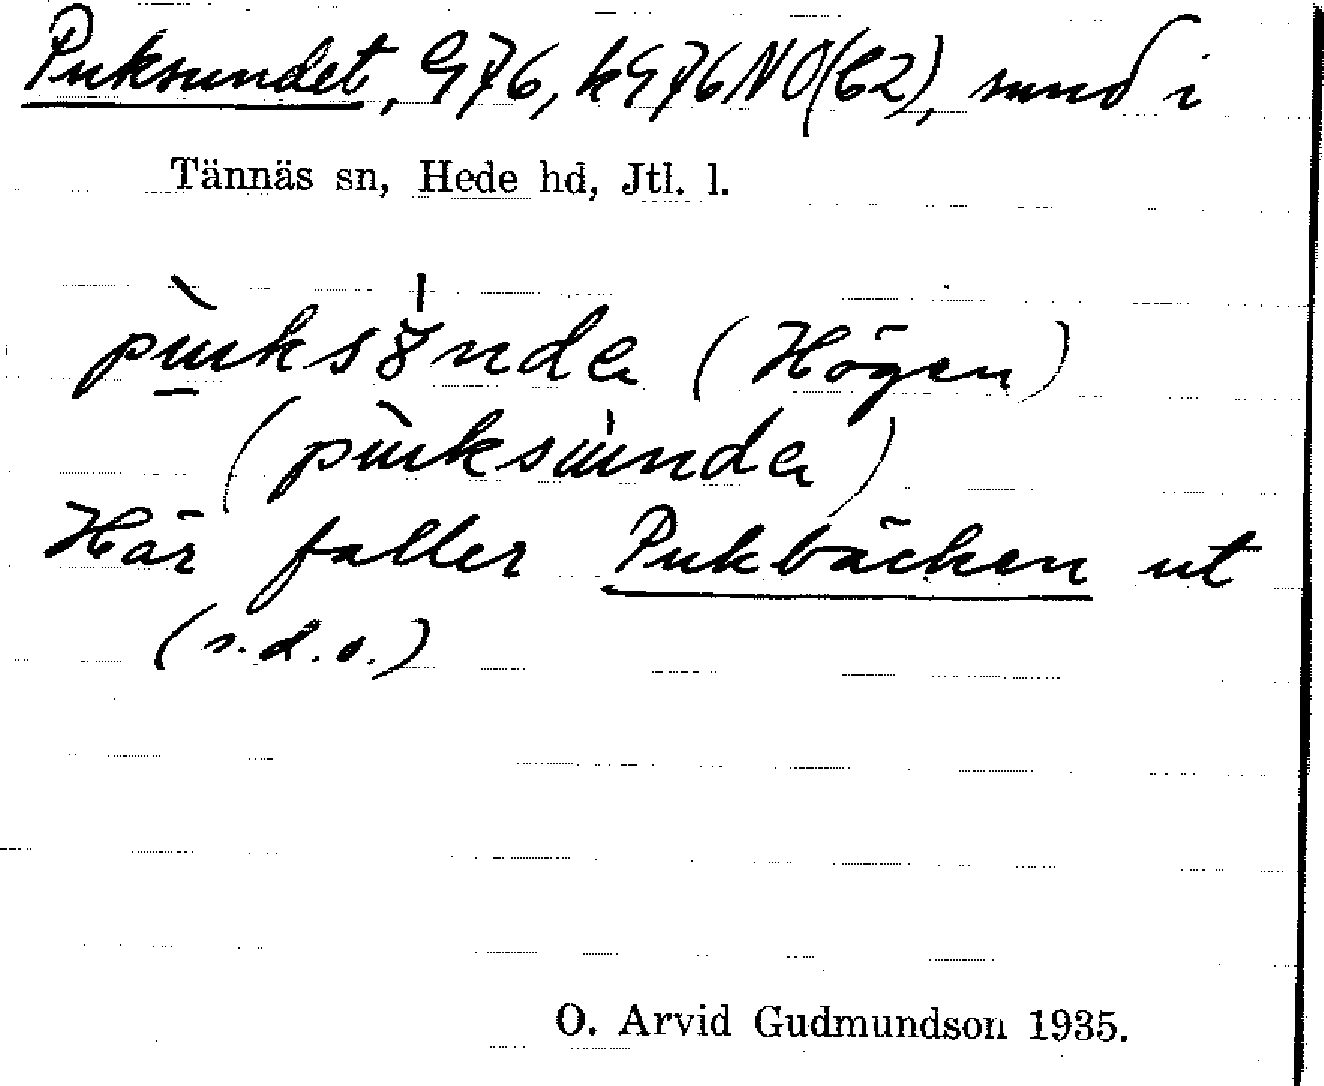 Puksundet, G76, kG76NO(62), sund i
Tännäs sn, Hede hd, Jtl. l.
(Högen)
(puksunda)
Här faller Pukbäcken ut
(s.d.o.)
O. Arvid Gudmundson 1935.